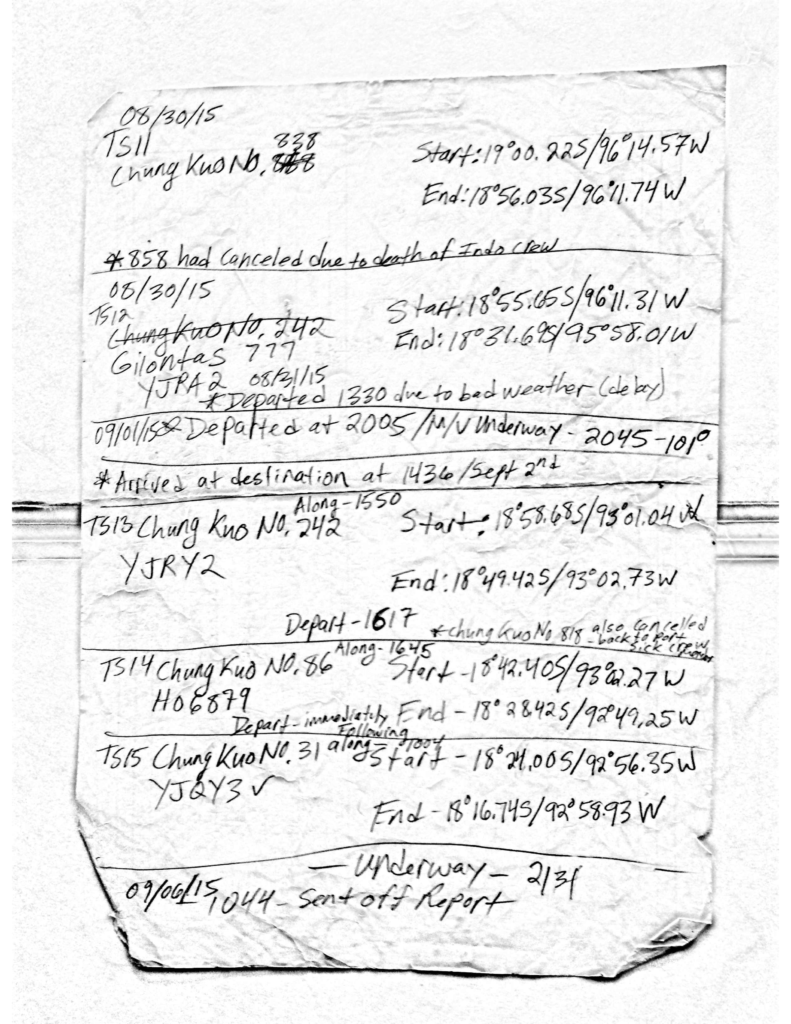 08/30/15
TS11
838
Chung Kuo No. 
Start: 19°00.22S/96°14.57W
End: 18°56.03S/96°11.74W
*858 had canceled due to death of Indo crew
08/30/15
TS12
Chung Kuo No. 242
Start: 18°55.65S/96°11.31W
End: 18°31.69S/95°58.01W
Gilontas 777
YJRA2 08/31/15
*Departed 1330 due to bad weather (delay)
09/01/15 Departed at 2005/M/V Underway - 2045-101°
*Arrived at destination at 1436/Sept 2nd
Along-1550
TS13 Chung Kuo No. 242
Start: 18°58.68S/93°01.04W
YJRY2
End: 18°49.42S/93°02.73W
Depart-1617
*Chung Kuo No. 818 also cancelled
-back to port
sick crew
Along-1645
TS14 Chung Kuo No. 86
Start-18°42.40S/93°02.27W
HO6879
Depart-immediately
Following
End-18°28.42S/92°49.25W
TS15 Chung Kuo No. 31 along
Start-18°21.00S/92°56.35W
YJQY3 ✓
End-18°16.74S/92°58.93W
—Underway— 2131
09/06/15, 1044- Sent off Report